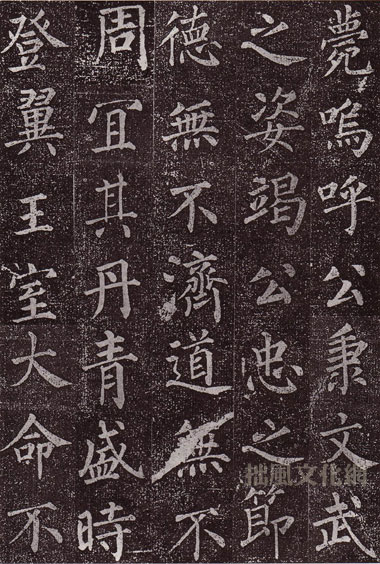 薨嗚呼公秉文武
之姿竭公忠之節
德無不濟道無不
周冝其丹青盛時
登翼王室大命不
拙風文化網